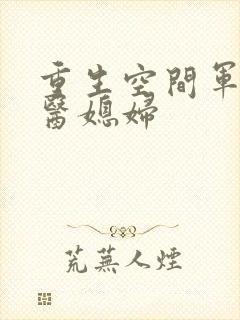 重生空間軍
醫媳婦
荒蕪人煙